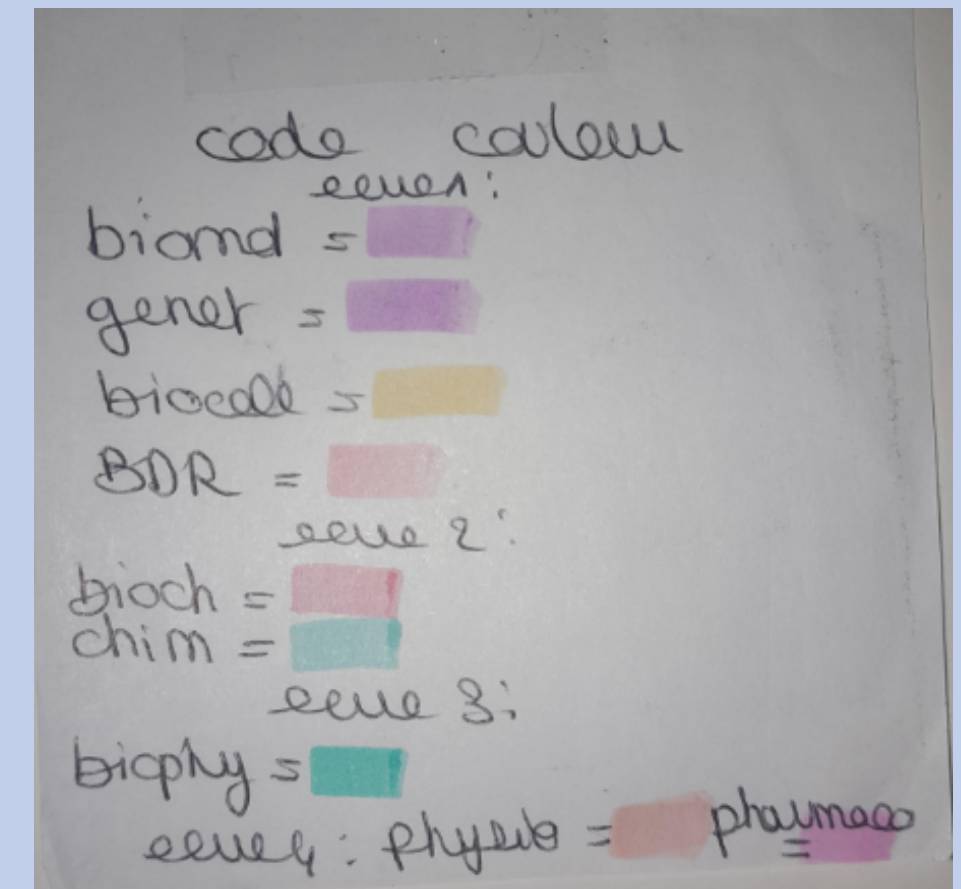 code couleur
eeue1:
biomol =
genet =
biocell =
BDR =
eeue 2:
bioch =
chim =
eeue 3:
biophy =
eeue4: physio = pharmaco =